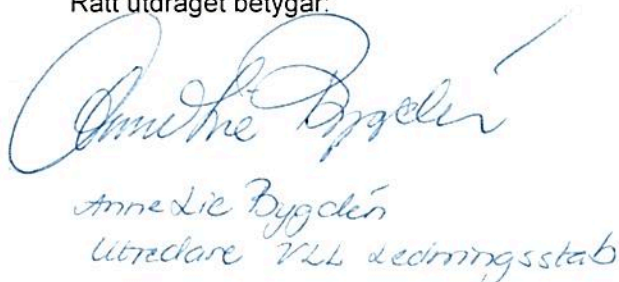 Rätt utdraget betygar:
AnneLie Bygdén
AnneLie Bygdén
Utredare VLL Ledningsstab